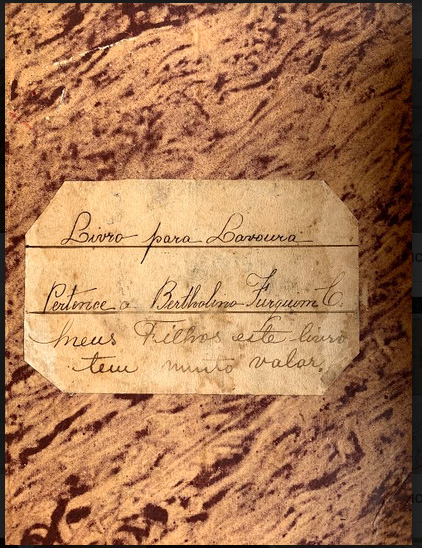 Livro para Lavoura
Pertence a Bertholino Furquim C.
Meus Filhos este livro
tem muito valor.